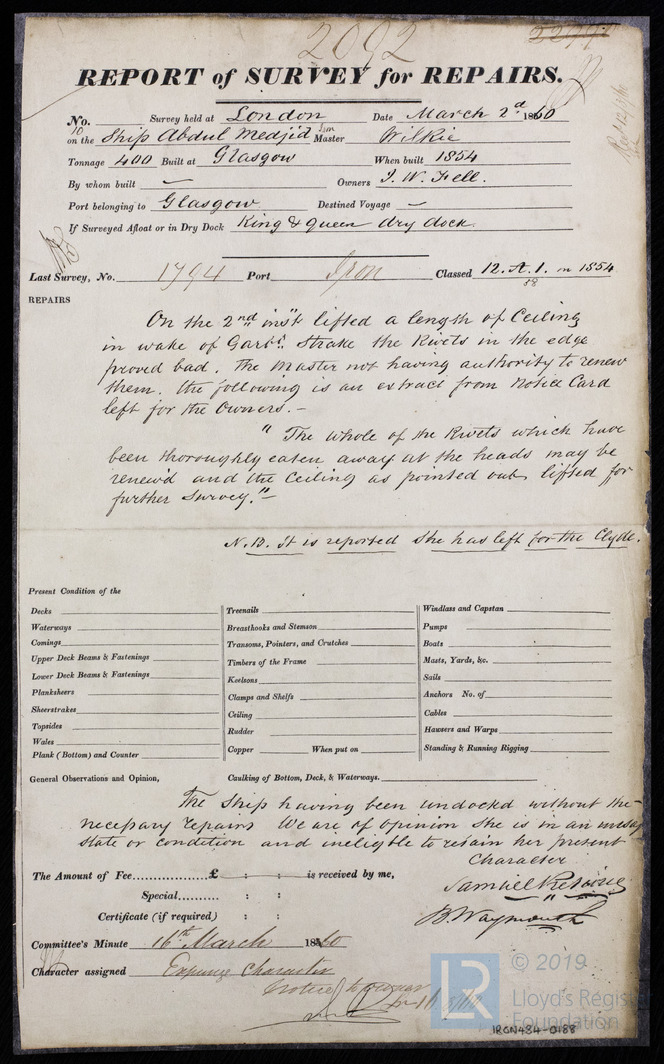 2092
REPORT of SURVEY for REPAIRS.
No. Survey held at London Date March 2d. 1860
on the Ship Abdul Medjid Master Wilkie
Tonnage 400 Built at Glasgow When built 1854
By whom built — Owners J. W. Fell.
Port belonging to Glasgow Destined Voyage —
If Surveyed Afloat or in Dry Dock King & Queen dry dock
Last Survey, No. 1794 Port Iron Classed 12. A. 1. in 1854
58
REPAIRS
On the 2nd inst lifted a length of Ceiling
in wake of Garbd. Strake the Rivets in the edge
proved bad. The Master not having authority to renew
them. the following is an extract from Notice Card
left for the Owners. –
" The whole of the Rivets which have
been thoroughly eaten away at the heads may be
renew'd and the Ceiling as pointed out lifted for
further Survey." –
N.B. It is reported She has left for the Clyde.
Present Condition of the
Decks
Waterways
Comings
Upper Deck Beams & Fastenings
Lower Deck Beams & Fastenings
Planksheers
Sheerstrakes
Topsides
Wales
Plank (Bottom) and Counter
Treenails
Breasthooks and Stemson
Transoms, Pointers, and Crutches
Timbers of the Frame
Keelsons
Clamps and Shelfs
Ceiling
Rudder
Copper When put on
Windlass and Capstan
Pumps
Boats
Masts, Yards, &c.
Sails
Anchors No. of
Cables
Hawsers and Warps
Standing & Running Rigging
General Observations and Opinion, Caulking of Bottom, Deck, & Waterways.
The Ship having been undocked without the
necessary repairs We are of opinion She is in an
state or condition and ineligible to retain her present
Character
The Amount of Fee............£ : : is received by me,
Special............ : :
Certificate (if required) : :
Samuel
B. Waymouth
Committee's Minute 16th March 1860
Character assigned Expunge Character
Notice to Owner
LR © 2019
Lloyd's Regist
Foundation
IRON484-0188